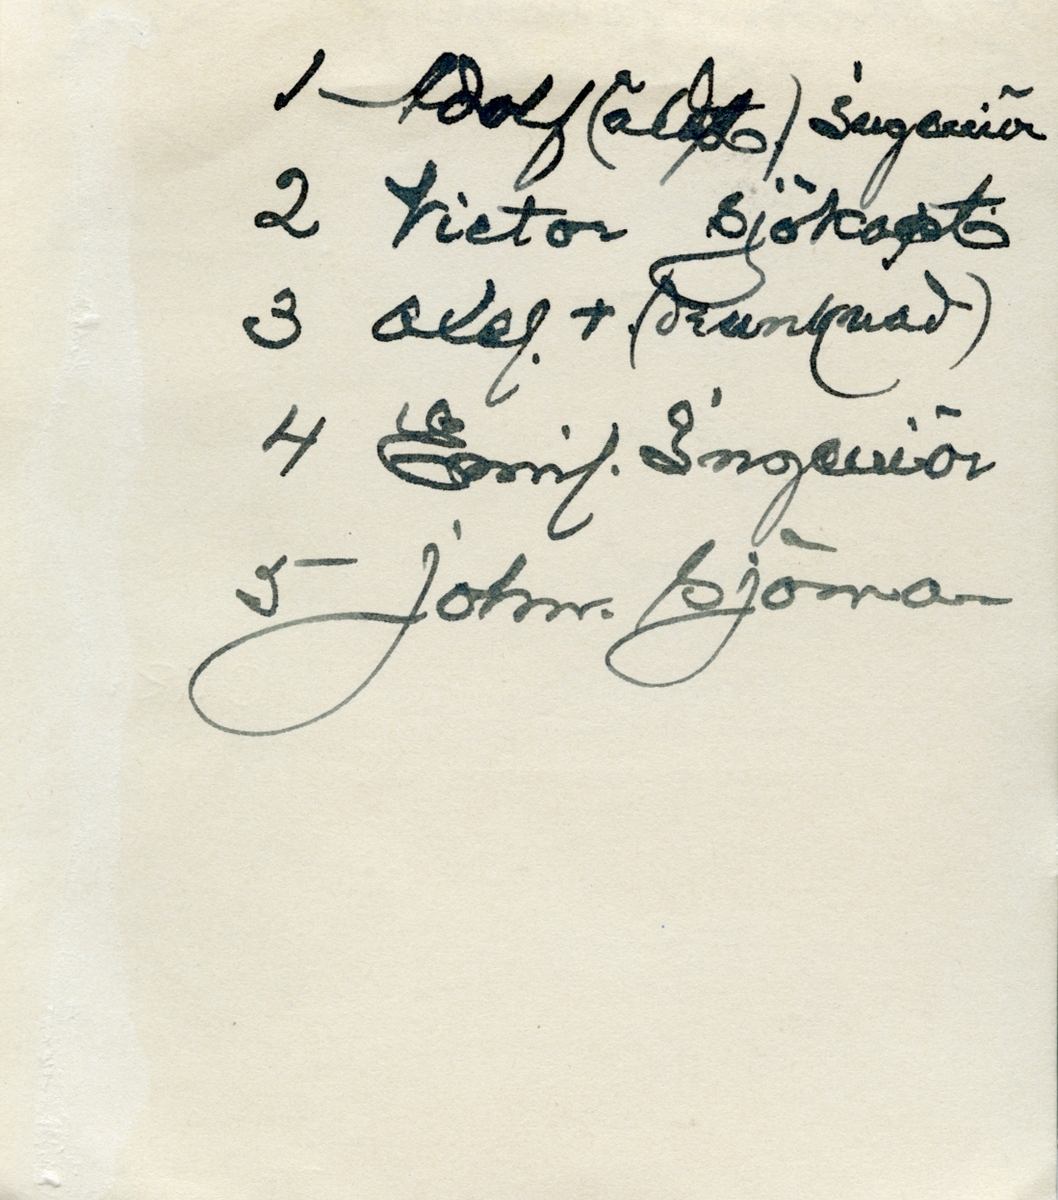 1 Adolf (äldst.) Ingeniör
2 Victor Sjökapt.
3 Olof. + (Drunknad)
4 Emil. Ingeniör
5 John. Sjöman